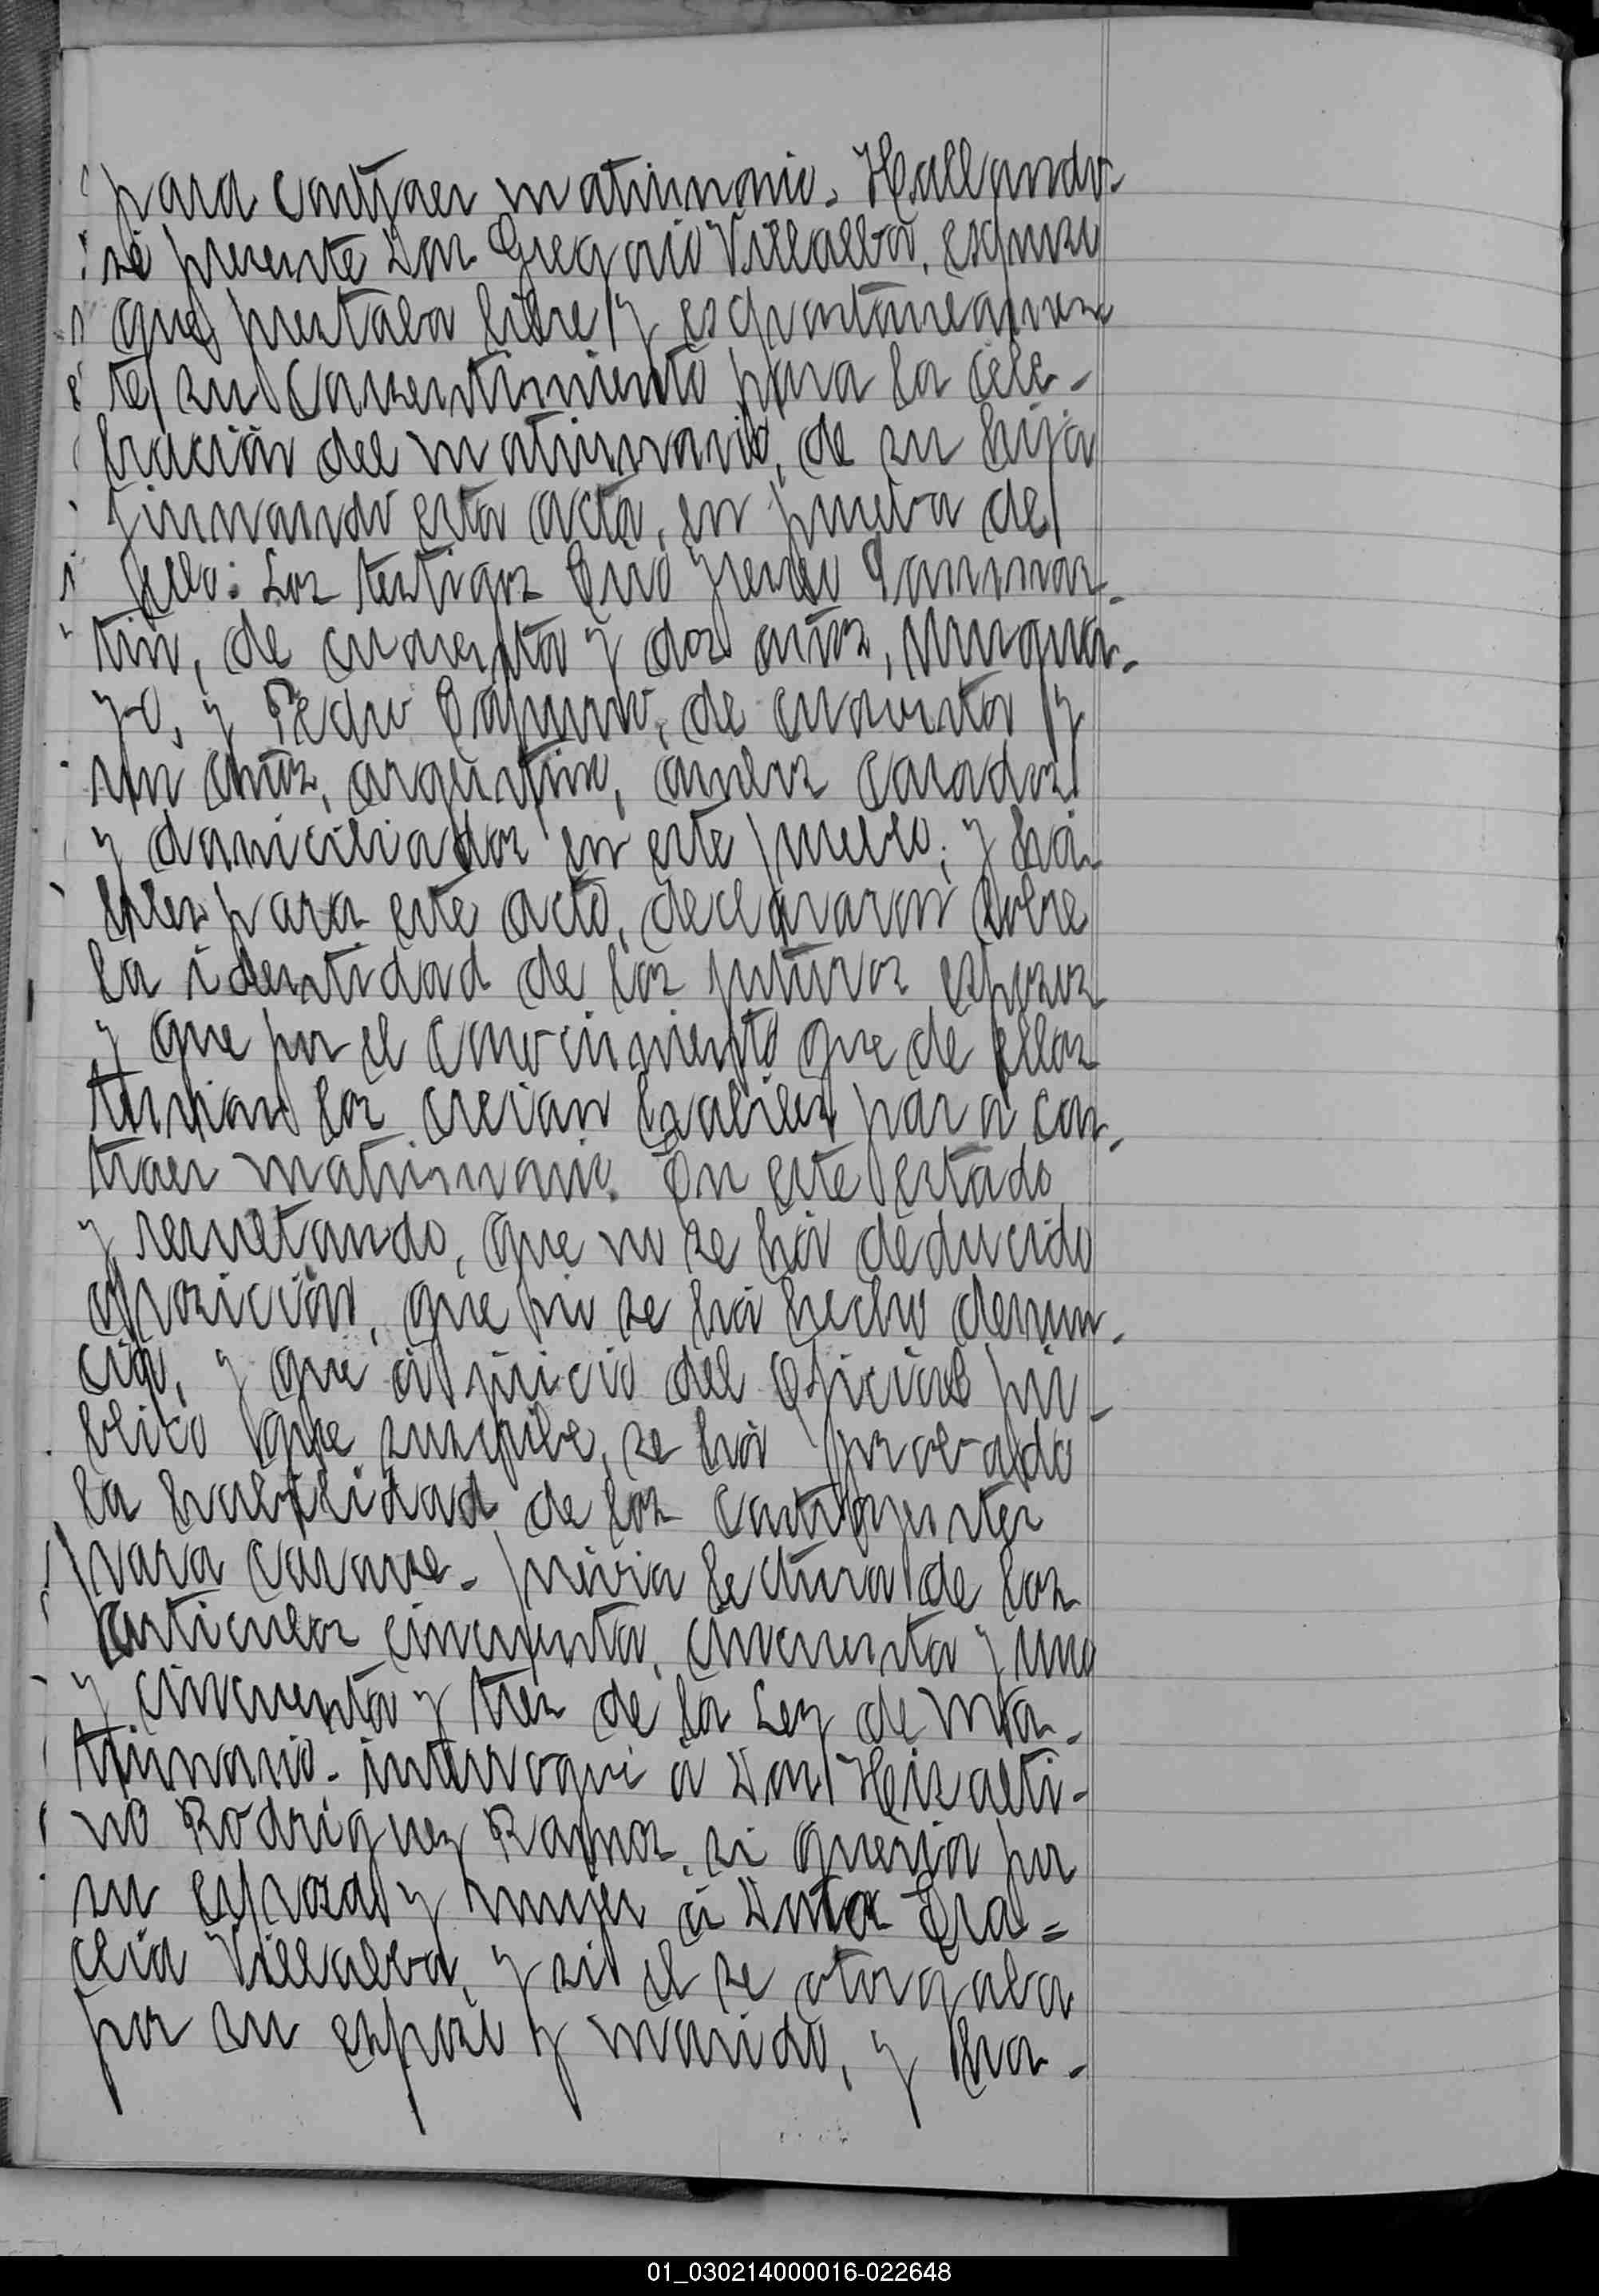 para contraer matrimonio. Hallando-
se presente Don Gregorio Villalba, espuso
que prestaba libre y espontaneamen
te su consentimiento para la cele-
bración del matrimonio, de su hija
firmando esta acta, en prueba de
ello: Los testigos Sanmar-
tin, de cuarenta y dos años, Urugua-
yo, y Pedro de cuarenta y
un años, argentino, ambos casados
y domiciliados en este pueblo; y há-
biles para este acto, declararon sobre
la identidad de los futuros esposos
y que por el conocimiento que de ellos
tenian los creian habiles para con-
traer matrimonio. En este estado
y resultando, que no se há deducido
oposición, que no se há hecho denun-
cia, y que á juicio del oficial pú-
blico que suscribe, se há probado
la habilidad de los contrayentes
para casarse. previa lectura de los
articulos cincuenta, cincuenta y uno
y cincuenta y tres de la Ley de Ma-
trimonio. interrogué á Don Hisalti-
no Rodriguez Ramos, si queria por
su esposa y mujer á Doña Era=
clia Villalba, y si el se otorgaba
por su esposo y marido, y ha-
01_030214000016-022648